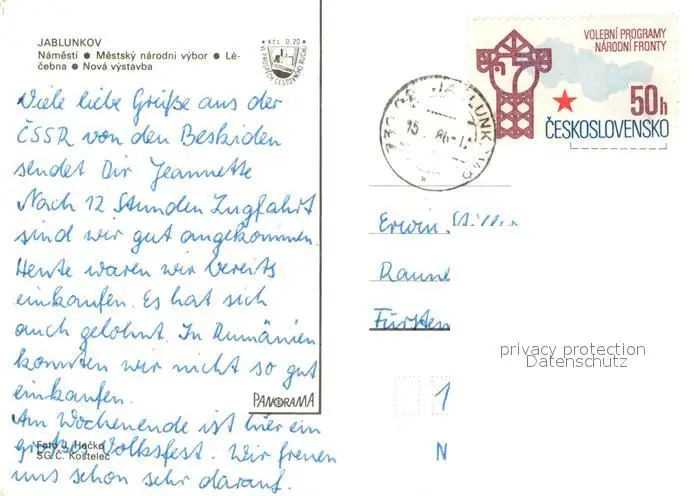 JABLUNKOV
Náměstí ● Městský národní výbor ● Lé-
čebna ● Nová výstavba
★ Kčs 0,20 ★
VE PROSPĚCH CESTOVNÍHO RUCHU
Viele liebe Grüße aus der
ČSSR von den Beskiden
sendet Dir Jeannette
Nach 12 Stunden Zugfahrt
sind wir gut angekommen.
Heute waren wir bereits
einkaufen. Es hat sich
auch gelohnt. In Rumänien
konnten wir nicht so gut
einkaufen.
Am Wochenende ist hier ein
großes Volksfest. Wir freuen
uns schon sehr darauf.
Foto J. Hečko
SG Č. Kostelec
PANORAMA
VOLEBNÍ PROGRAMY
NÁRODNÍ FRONTY
50h
ČESKOSLOVENSKO
JABLUNKOV
Erwin
Raune
Fürsten
privacy protection
Datenschutz
1
N